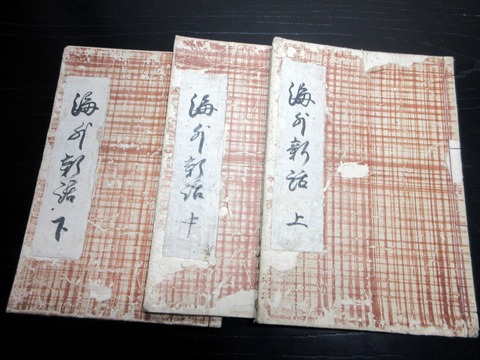 海外新話 上
海外新話 中
海外新話 下